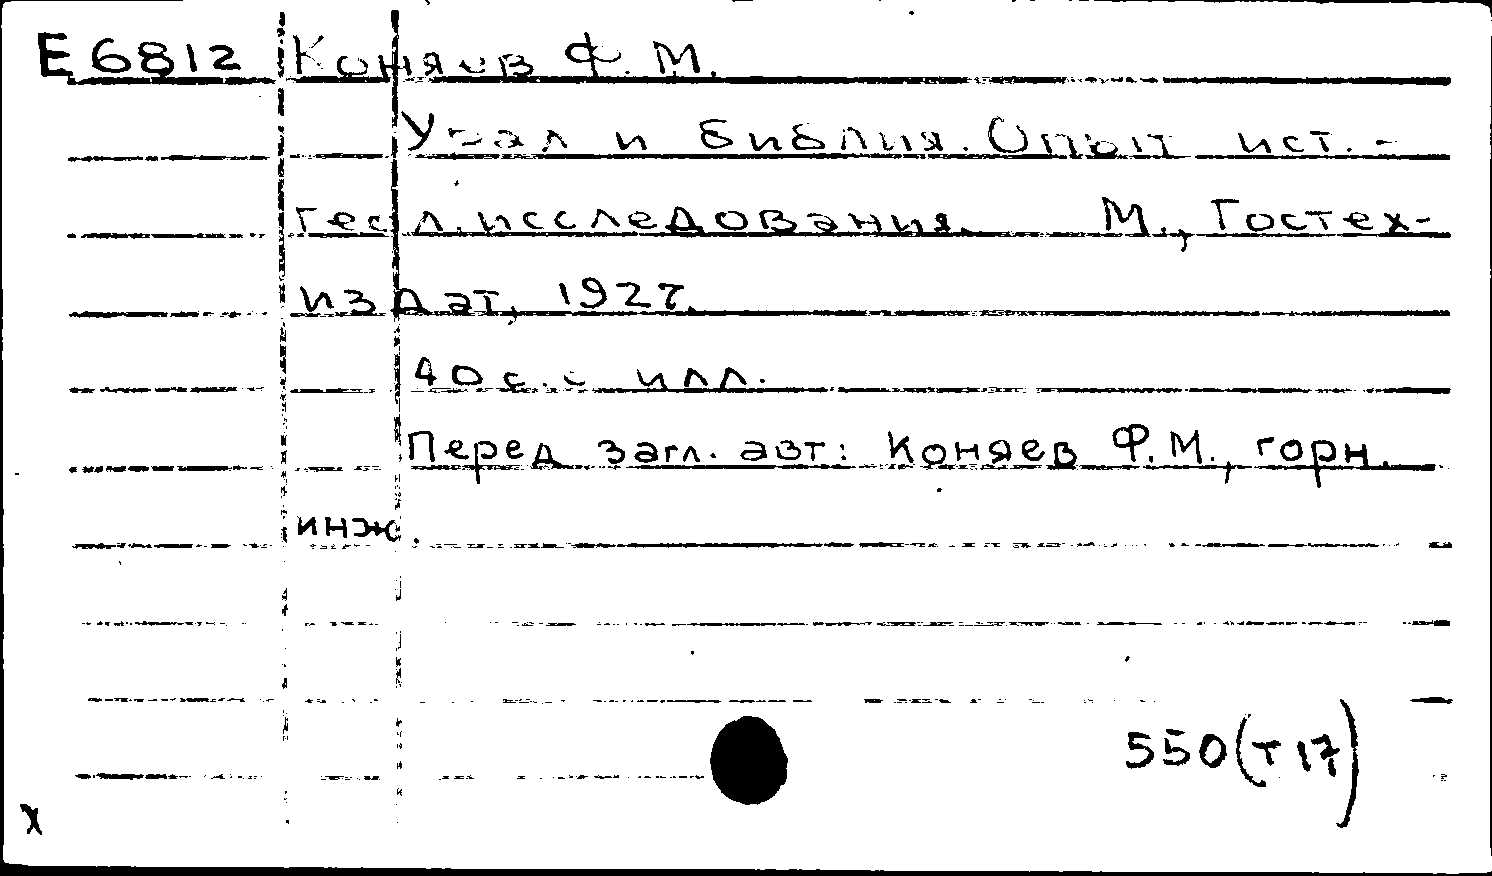 Е 6812 Коняев Ф. М.
Урал и библия. Опыт ист.-
геол. исследования. М., Гостех-
издат, 1927.
40 с. с илл.
Перед загл. авт: Коняев Ф.М., горн.
инж.
550(Т17)
х